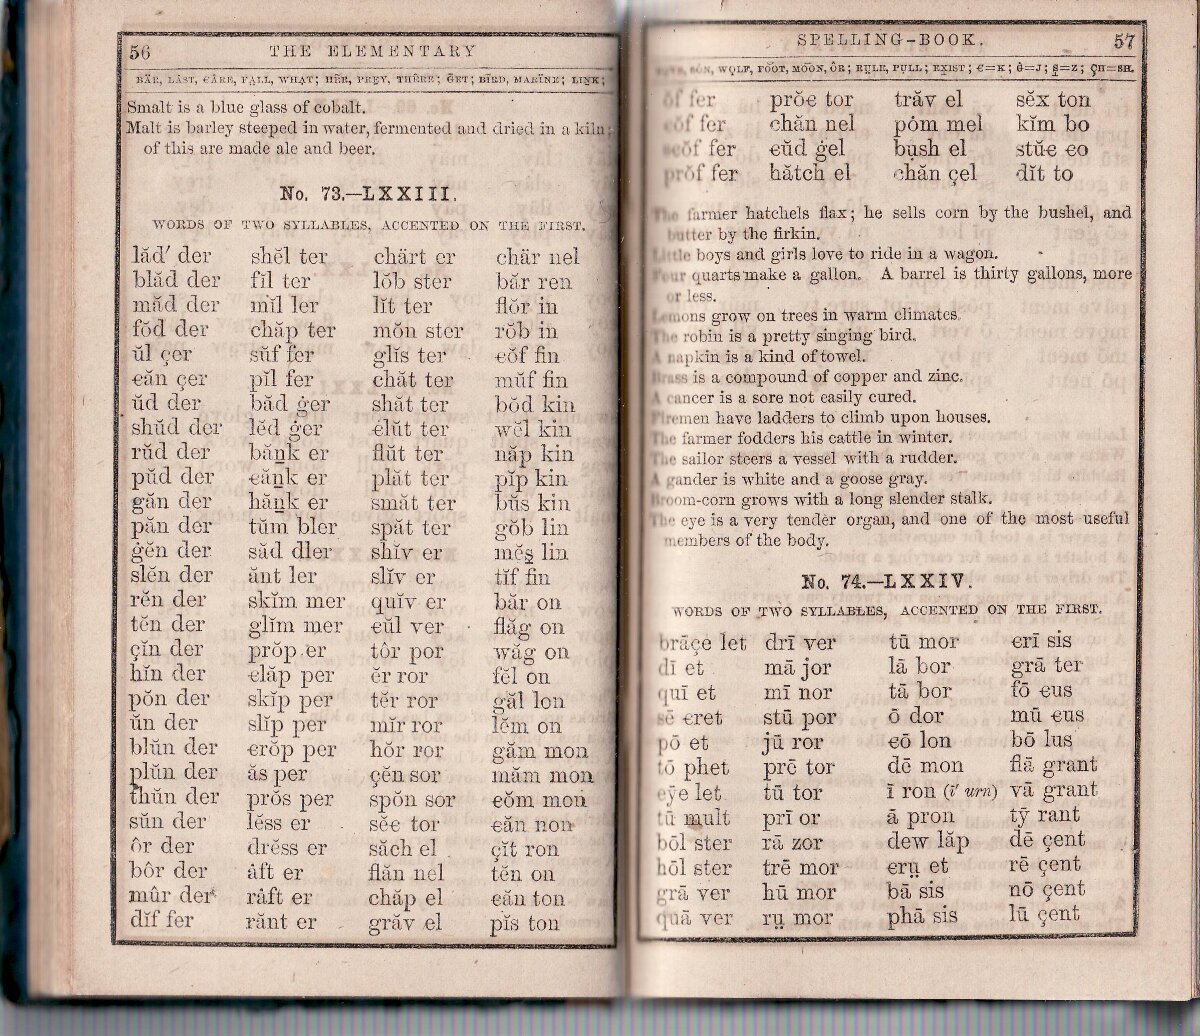 56 THE ELEMENTARY
BÄR, LÅST, ꞒÂRE, FẠLL, WHẠT; HẼR, PRẸY, THÊRE; ĞET; BĨRD, MARÏNE; LIṈK;
Smalt is a blue glass of cobalt.
Malt is barley steeped in water, fermented and dried in a kiln;
of this are made ale and beer.
No. 73.—LXXIII.
WORDS OF TWO SYLLABLES, ACCENTED ON THE FIRST.
lăd′ der shĕl ter chärt er chär nel
blăd der fĭl ter lŏb ster băr ren
măd der mĭl ler lĭt ter flŏr in
fŏd der chăp ter mŏn ster rŏb in
ŭl çer sŭf fer glĭs ter ꞓŏf fin
ꞓăn çer pĭl fer chăt ter mŭf fin
ŭd der băd ġer shăt ter bŏd kin
shŭd der lĕd ġer ꞓlŭt ter wĕl kin
rŭd der băṉk er flŭt ter năp kin
pŭd der ꞓăṉk er plăt ter pĭp kin
găn der hăṉk er smăt ter bŭs kin
păn der tŭm bler spăt ter gŏb lin
ġĕn der săd dler shĭv er mĕs̱ lin
slĕn der ănt ler slĭv er tĭf fin
rĕn der skĭm mer quĭv er băr on
tĕn der glĭm mer ꞓŭl ver flăg on
çĭn der prŏp er tôr por wăg on
hĭn der ꞓlăp per ĕr ror fĕl on
pŏn der skĭp per tĕr ror găl lon
ŭn der slĭp per mĭr ror lĕm on
blŭn der ꞓrŏp per hŏr ror găm mon
plŭn der ăs per çĕn sor măm mon
thŭn der prŏs per spŏn sor ꞓŏm mon
sŭn der lĕss er sĕꞓ tor ꞓăn non
ôr der drĕss er săch el çĭt ron
bôr der åft er flăn nel tĕn on
mûr der råft er chăp el ꞓăn ton
dĭf fer rănt er grăv el pĭs ton
SPELLING-BOOK. 57
SÔN, WO̤LF, FO͝OT, MO͞ON, ÔR; RṲLE, PṲLL; EX̱IST; Ꞓ=K; Ġ=J; S̱=Z; ÇH=SH.
ŏf fer prŏꞓ tor trăv el sĕx ton
ꞓŏf fer chăn nel pȯm mel kĭm bo
ꞓŏf fer ꞓŭd ġel bụsh el stŭꞓ ꞓo
prŏf fer hătch el chăn çel dĭt to
The farmer hatchels flax; he sells corn by the bushel, and
butter by the firkin.
Little boys and girls love to ride in a wagon.
Four quarts make a gallon. A barrel is thirty gallons, more
or less.
Lemons grow on trees in warm climates.
The robin is a pretty singing bird.
A napkin is a kind of towel.
Brass is a compound of copper and zinc.
A cancer is a sore not easily cured.
Firemen have ladders to climb upon houses.
The farmer fodders his cattle in winter.
The sailor steers a vessel with a rudder.
A gander is white and a goose gray.
Broom-corn grows with a long slender stalk.
The eye is a very tender organ, and one of the most useful
members of the body.
No. 74.—LXXIV.
WORDS OF TWO SYLLABLES, ACCENTED ON THE FIRST.
brāçe let drī ver tū mor ꞓrī sis
dī et mā jor lā bor grā ter
quī et mī nor tā bor fō ꞓus
sē ꞓret stū por ō dor mū ꞓus
pō et jū ror ꞓō lon bō lus
tō phet prē tor dē mon flā grant
eȳe let tū tor ī ron (ī′ urn) vā grant
tū mult prī or ā pron tȳ rant
bōl ster rā zor dew lăp dē çent
hōl ster trē mor ꞓrṳ et rē çent
grā ver hū mor bā sis nō çent
quā ver rṳ mor phā sis lū çent